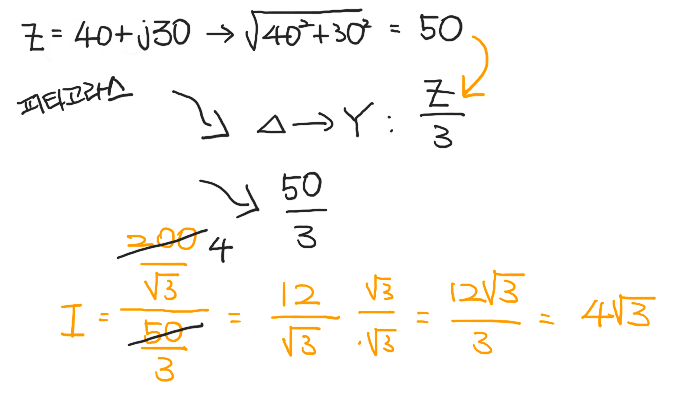 Z = 40 + j30 → √(40² + 30²) = 50
피타고라스
△ → Y : Z/3
50/3
I = (200/√3)/(50/3) 4 = 12/√3 · √3/√3 = 12√3/3 = 4√3